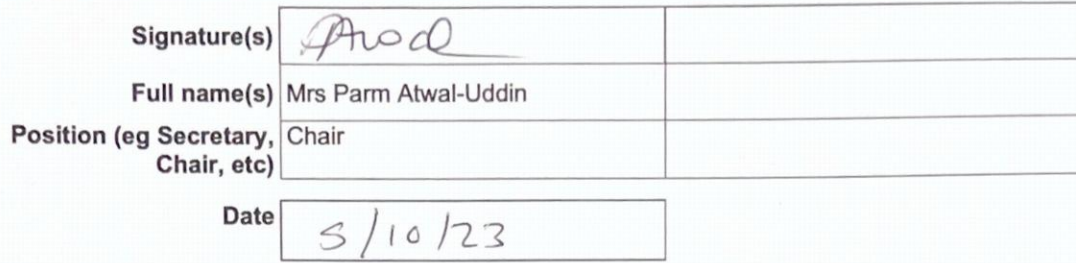 Signature(s)
Full name(s) Mrs Parm Atwal-Uddin
Position (eg Secretary, Chair
Chair, etc)
Date 5/10/23